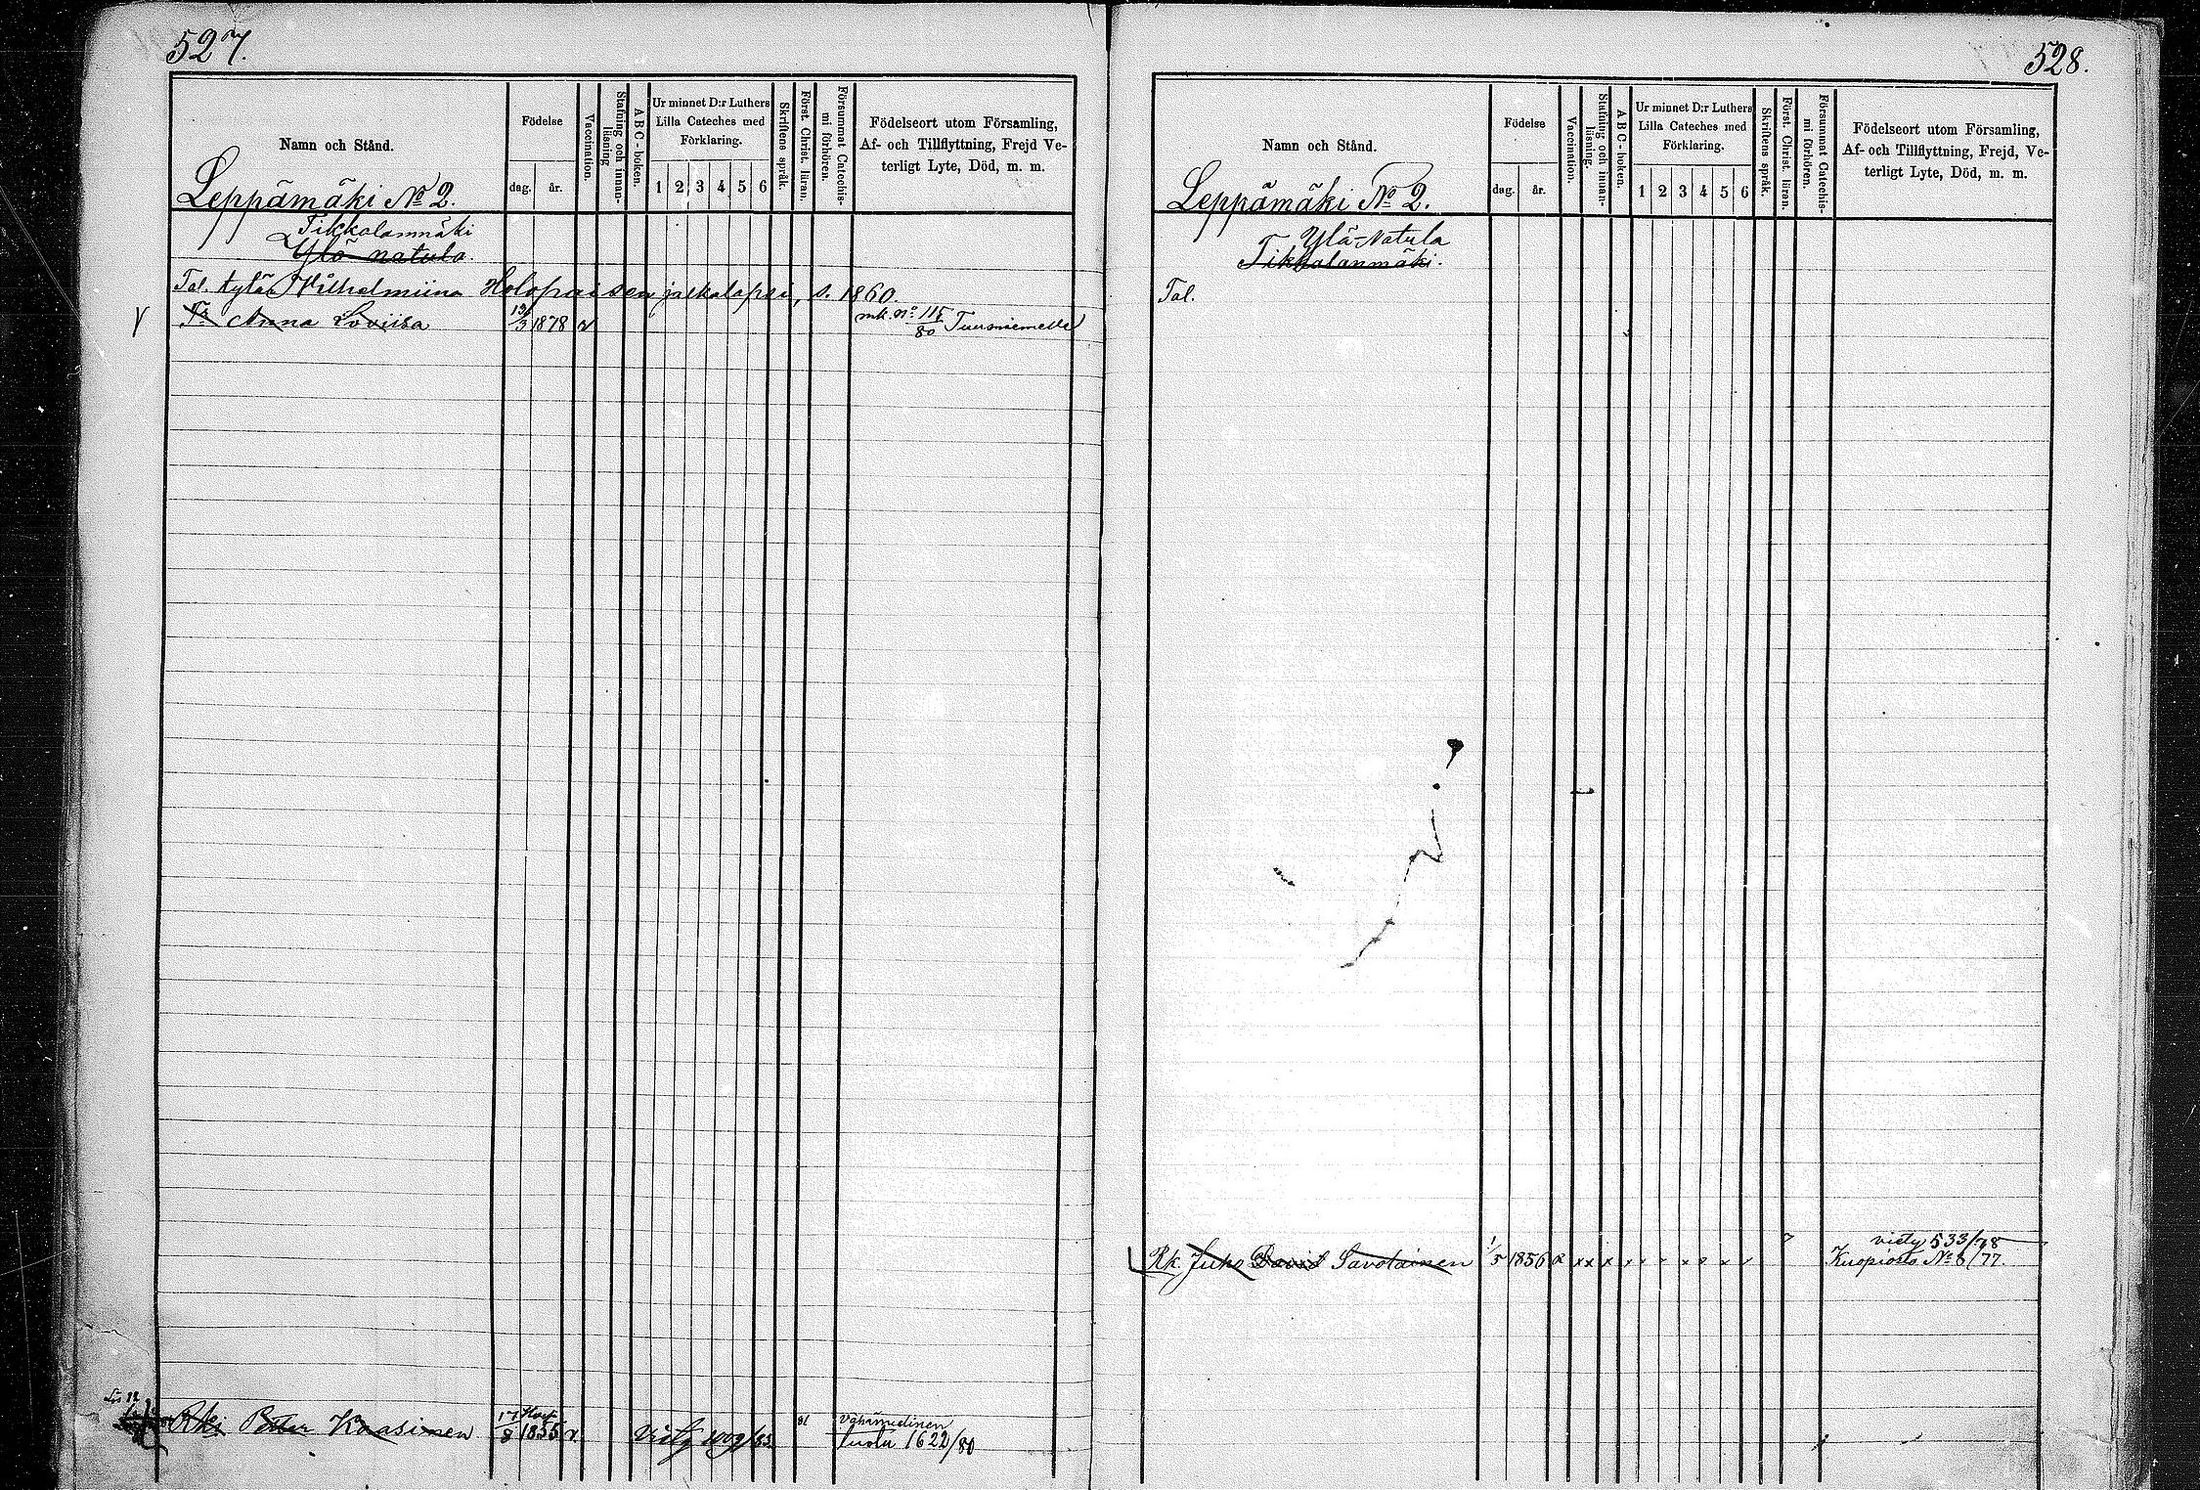 527.
Namn och Stånd.
Födelse
dag.
år.
Vaccination.
Stafning och innan-
läsning
ABC-boken.
Ur minnet D:r Luthers
Lilla Cateches med
Förklaring.
1 2 3 4 5 6
Skriftens språk.
Först. Christ. läran.
Försummat Catechis-
mi förhören.
Födelseort utom Församling,
Af- och Tillflyttning, Frejd Ve-
terligt Lyte, Död, m. m.
Leppämäki No 2.
Tikkalanmäki
Ylä-natula
Tal. Wilhelmiina Holopaisen jalkalapsi, s. 1860.
Tr Anna Loviisa 1878 v mk. no 115/80 Tuusniemelle
Rki Petter Kaasinen 17/8 1855 v. Viety 1009/83 81
Tuotu 1622/80
528.
Namn och Stånd.
Födelse
dag.
år.
Vaccination.
Stafning och innan-
läsning.
ABC-boken.
Ur minnet D:r Luthers
Lilla Cateches med
Förklaring.
1 2 3 4 5 6
Skriftens språk.
Först. Christ. läran.
Försummat Catechis-
mi förhören.
Födelseort utom Församling,
Af- och Tillflyttning, Frejd, Ve-
terligt Lyte, Död, m. m.
Leppämäki No 2.
Ylä-Natula
Tikkalanmäki.
Tal.
viety 533/78
Rk. Juho David Savolainen 1/5 1856 Kuopiosta No 8/77.